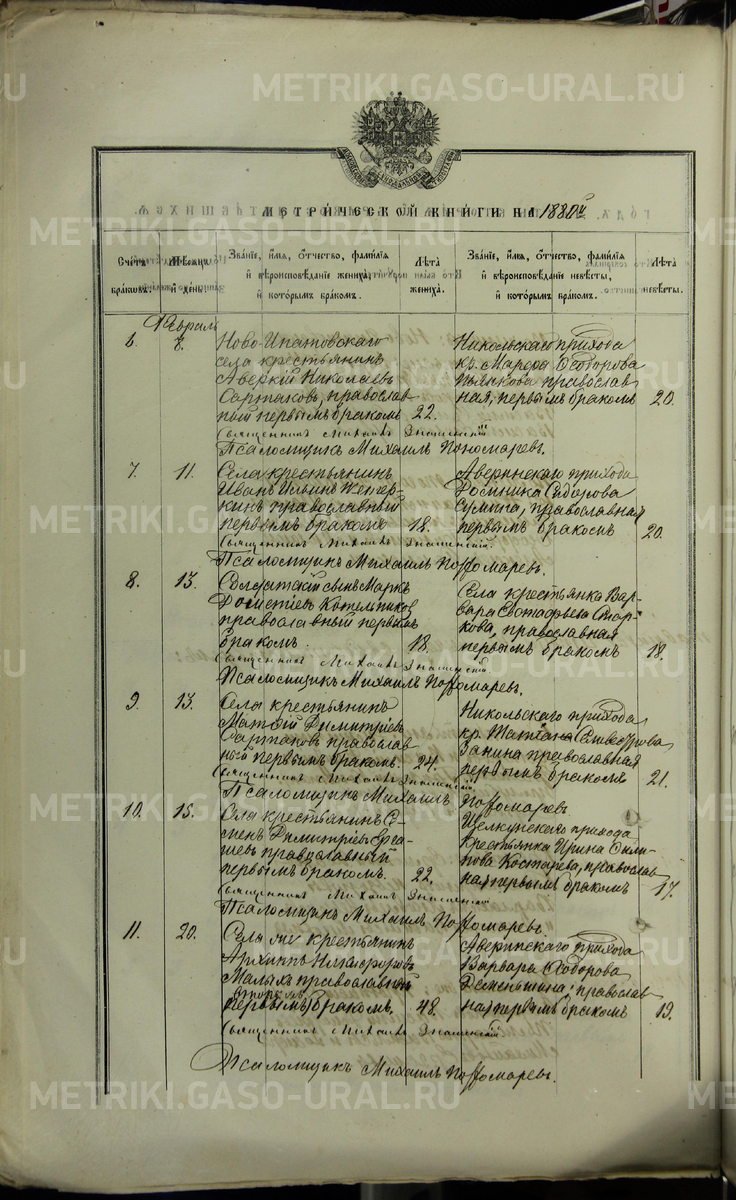 METRIKI.GASO-URAL.RU
МЕТРИЧЕСКОЙ КНИГИ НА 1880й
Счетъ браковъ.
Мѣсяцъ и день.
Званіе, имя, отчество, фамилія и вѣроисповѣданіе жениха, и которымъ бракомъ.
Лѣта жениха.
Званіе, имя, отчество, фамилія и вѣроисповѣданіе невѣсты, и которымъ бракомъ.
Лѣта невѣсты.
Февраль
6. 8.
Ново-Ипатовскаго
села крестьянинъ
Аверкій Николаевъ
Сартаковъ, православ
ный первымъ бракомъ 22.
Никольскаго прихода
кр. Марѳа Ѳеодорова
Пьянкова православ
ная, первымъ бракомъ 20.
Священникъ Михаилъ Знаменскій
Псаломщикъ Михаилъ Пономаревъ.
7. 11.
Села крестьянинъ
Иванъ Ильинъ
кинъ православный
первымъ бракомъ 18.
Аверинскаго прихода
Сидорова
православная
первымъ бракомъ 20.
Священникъ Михаилъ Знаменскій.
Псаломщикъ Михаилъ Пономаревъ.
8. 13.
Солдатскій сынъ Маркъ
Дометіевъ Котельников
православный первымъ
бракомъ. 18.
Села крестьянка Вар-
вара Евстафьева Стар-
кова, православная
первымъ бракомъ 18.
Священникъ Михаилъ Знаменскій
Псаломщикъ Михаилъ Пономаревъ.
9. 13.
Села крестьянинъ
Матѳій Димитріевъ
Сартаковъ православ
ный первымъ бракомъ. 24.
Никольскаго прихода
кр. Татіана
Занина православная
первымъ бракомъ 21.
Священникъ Михаилъ Знаменскій
Псаломщикъ Михаилъ Пономаревъ.
10. 15.
Села крестьянинъ Се-
менъ Димитріевъ Ерга-
шевъ православный
первымъ бракомъ. 22.
Щелкунскаго прихода
крестьянка Ирина Фили-
пова Костарева, православ
ная первымъ бракомъ 17.
Священникъ Михаилъ Знаменскій
Псаломщикъ Михаилъ Пономаревъ.
11. 20.
Села же крестьянинъ
Архиппъ Никифоровъ
Малыхъ православный
вторымъ
первымъ бракомъ. 48.
Аверинскаго прихода
Варвара Ѳеодорова
Деменьшина православ
ная первымъ бракомъ 19.
Священникъ Михаилъ Знаменскій.
Псаломщикъ Михаилъ Пономаревъ.